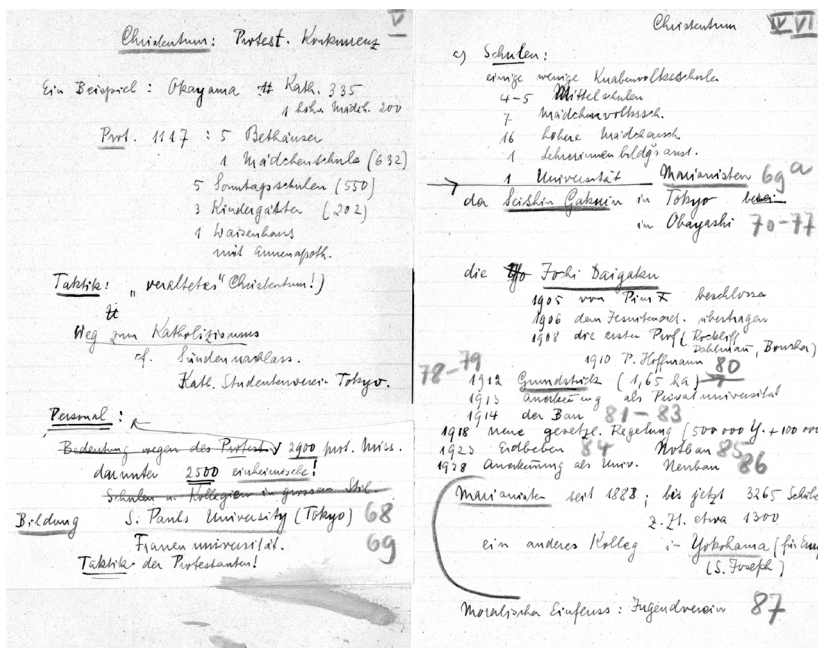 V
Christentum: Protest. Konkurrenz
Ein Beispiel: Okayama Kath. 335
1 höh. Mädch. 200
Prot. 1117 : 5 Bethäuser
1 Mädchenschule (632)
5 Sonntagsschulen (550)
3 Kindergärten (202)
1 Waisenhaus
mit Armenapoth.
Taktik: "veraltetes" Christentum!)
Weg zum Katholizismus
cf. Sündennachlass.
Kath. Studentenverein Tokyo.
Personal:
Bedeutung wegen des Protest. 2900 prot. Miss.
darunter 2500 einheimische!
Schulen u. Kollegien in grossem Stil
Bildung S. Pauls University (Tokyo) 68
Frauenuniversität. 69
Taktik der Protestanten!
Christentum IV VI
c) Schulen:
einige wenige Knabenvolksschulen
4-5 Mittelschulen
7 Mädchenvolkssch.
16 höhere Mädchensch.
1 Lehrerinnenbildgsanst.
1 Universität Marianisten 69a
der Seishin Gakuin in Tokyo
in Obayashi 70-77
die Jochi Daigaku
1905 von Pius X beschlossen
1906 dem Jesuitenord. übertragen
1908 die ersten Prof (Rockliff
Dahlmann, Boucher)
1910 P. Hoffmann 80
78-79
1912 Grundstück (1,65 ha)
1913 Anerkennung als Privatuniversität
1914 der Bau 81-83
1918 neue gesetzl. Regelung (500 000 Y. + 100 000
1923 Erdbeben 84 Notbau 85
1928 Anerkennung als Univ. Neubau 86
Marianisten seit 1888; bis jetzt 3265 Schül
z. Zt. etwa 1300
ein anderes Kolleg in Yokohama (für Eur
(S. Joseph)
Moralischer Einfluss: Jugendverein 87